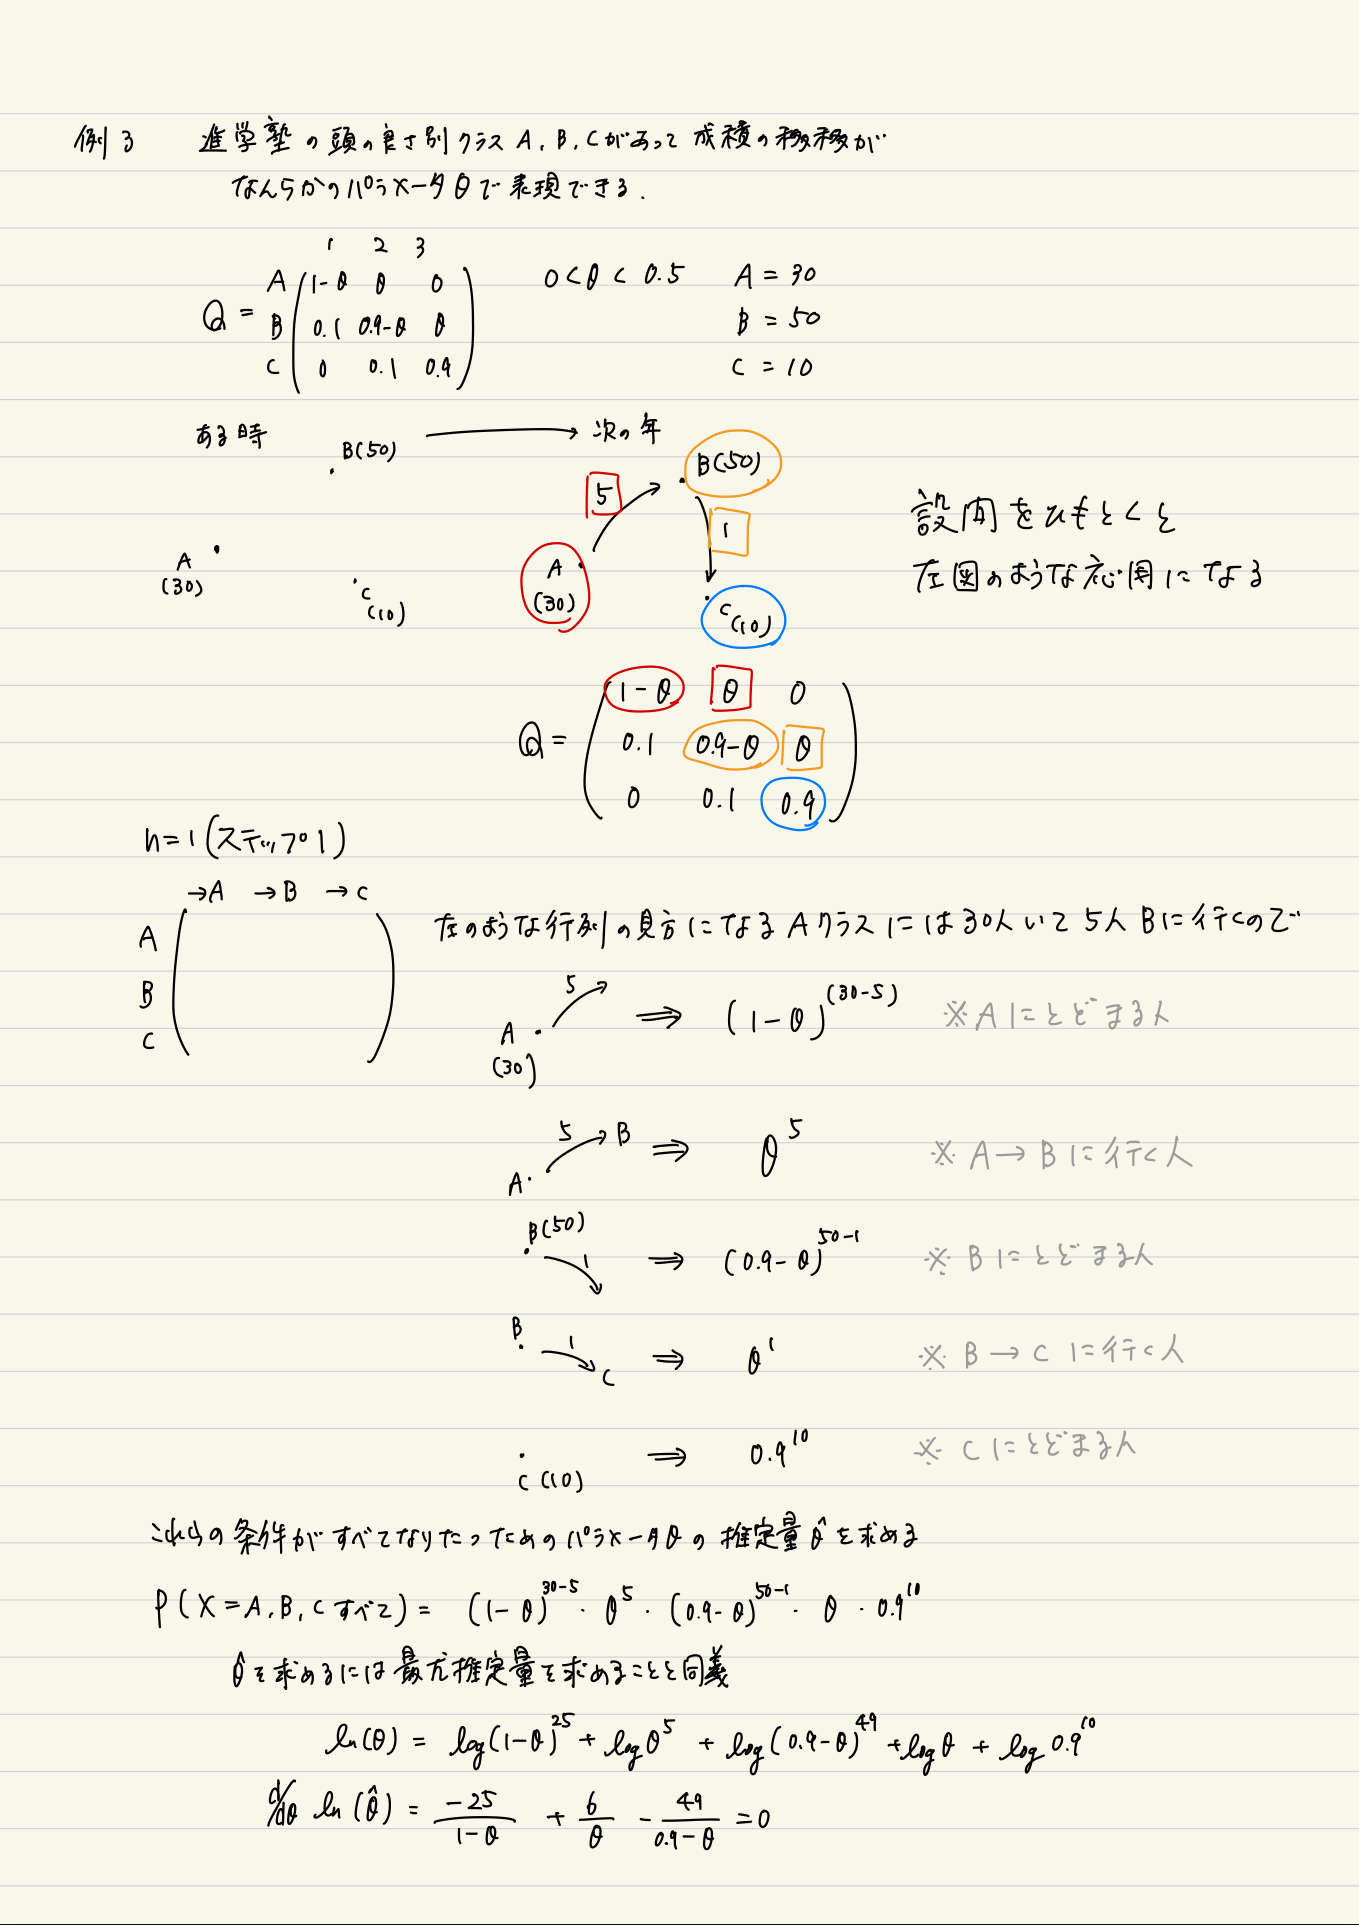 例3 進学塾の頭の良さ別クラスA,B,Cがあって成績の移移が
なんらかのパラメータθで表現できる.
1 2 3
A 1-θ θ 0
Q = B 0.1 0.9-θ θ
C 0 0.1 0.9
0<θ< 0.5
A = 30
B = 50
C = 10
ある時
B(50)
A
(30)
C
(10)
次の年
B(50)
5
1
A
(30)
C
(10)
設問をひもとくと
左図のような応図になる
Q =
1-θ θ 0
0.1 0.9-θ θ
0 0.1 0.9
n=1(ステップ1)
→A →B →C
A
B
C
左のような行列の見方になるAクラスには30人いて5人Bに行くので
5
A
(30)
⇒ (1-θ)^(30-5) ※Aにとどまる人
5
A B ⇒ θ^5 ※A→Bに行く人
B(50)
1 ⇒ (0.9-θ)^50-1 ※Bにとどまる人
B 1
C ⇒ θ^1 ※B→Cに行く人
C (10) ⇒ 0.9^10 ※Cにとどまる人
これらの条件がすべてなりたつためのパラメータθの推定量θ̂を求める
P(X=A,B,Cすべて) = (1-θ)^30-5 · θ^5 · (0.9-θ)^50-1 · θ · 0.9^10
θ̂を求めるには最尤推定量を求めることと同義
ln(θ) = log(1-θ)^25 + logθ^5 + log(0.9-θ)^49 + logθ + log 0.9^10
d/dθ ln(θ̂) = -25/1-θ + 6/θ - 49/0.9-θ = 0